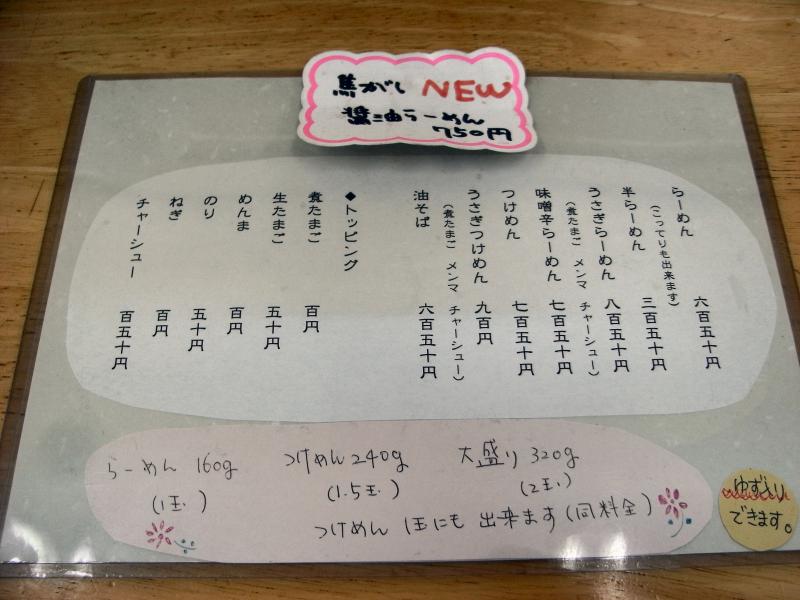 焦がし NEW
醤油らーめん
750円
らーめん 六百五十円
(こってりも出来ます)
半らーめん 三百五十円
うさぎらーめん 八百五十円
(煮たまご メンマ チャーシュー)
味噌辛らーめん 七百五十円
つけめん 七百五十円
うさぎつけめん 九百円
(煮たまご メンマ チャーシュー)
油そば 六百五十円
◆トッピング
煮たまご 百円
生たまご 五十円
めんま 百円
のり 五十円
ねぎ 百円
チャーシュー 百五十円
らーめん 160g つけめん 240g 大盛り 320g
(1玉) (1.5玉) (2玉)
つけめん 1玉にも 出来ます(同料金)
ゆず入り
できます。